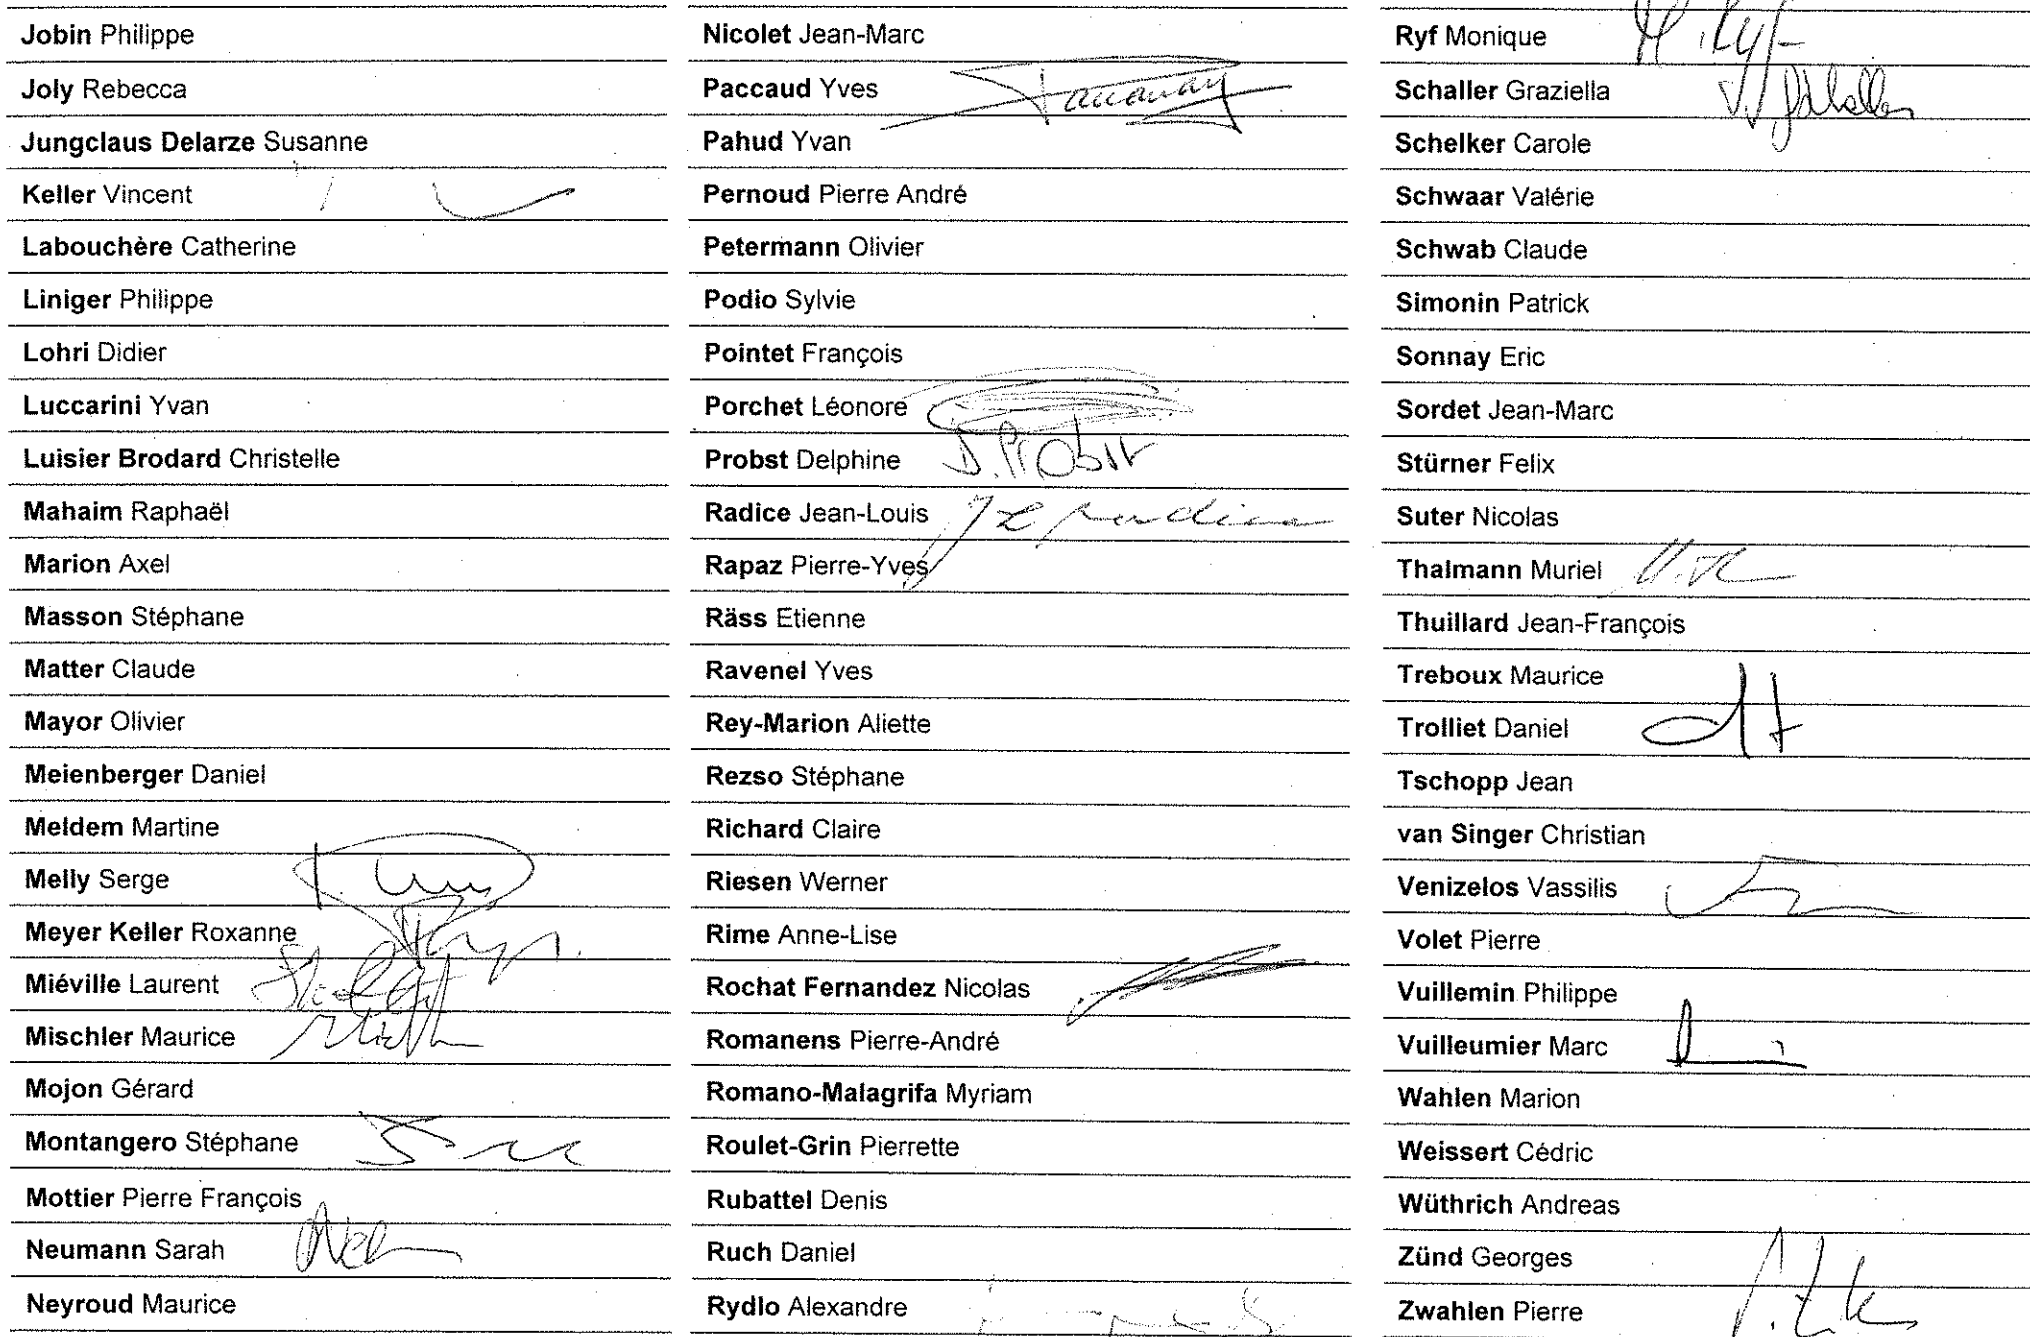 Jobin Philippe
Joly Rebecca
Jungclaus Delarze Susanne
Keller Vincent
Labouchère Catherine
Liniger Philippe
Lohri Didier
Luccarini Yvan
Luisier Brodard Christelle
Mahaim Raphaël
Marion Axel
Masson Stéphane
Matter Claude
Mayor Olivier
Meienberger Daniel
Meldem Martine
Melly Serge
Meyer Keller Roxanne
Miéville Laurent
Mischler Maurice
Mojon Gérard
Montangero Stéphane
Mottier Pierre François
Neumann Sarah
Neyroud Maurice
Nicolet Jean-Marc
Paccaud Yves
Pahud Yvan
Pernoud Pierre André
Petermann Olivier
Podio Sylvie
Pointet François
Porchet Léonore
Probst Delphine D. Probst
Radice Jean-Louis JL Radice
Rapaz Pierre-Yves
Räss Etienne
Ravenel Yves
Rey-Marion Aliette
Rezso Stéphane
Richard Claire
Riesen Werner
Rime Anne-Lise
Rochat Fernandez Nicolas
Romanens Pierre-André
Romano-Malagrifa Myriam
Roulet-Grin Pierrette
Rubattel Denis
Ruch Daniel
Rydlo Alexandre
Ryf Monique M. Ryf
Schaller Graziella
Schelker Carole
Schwaar Valérie
Schwab Claude
Simonin Patrick
Sonnay Eric
Sordet Jean-Marc
Stürner Felix
Suter Nicolas
Thalmann Muriel
Thuillard Jean-François
Treboux Maurice
Trolliet Daniel
Tschopp Jean
van Singer Christian
Venizelos Vassilis
Volet Pierre
Vuillemin Philippe
Vuilleumier Marc
Wahlen Marion
Weissert Cédric
Wüthrich Andreas
Zünd Georges
Zwahlen Pierre